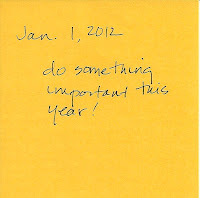 Jan. 1, 2012
do something
important this
year!